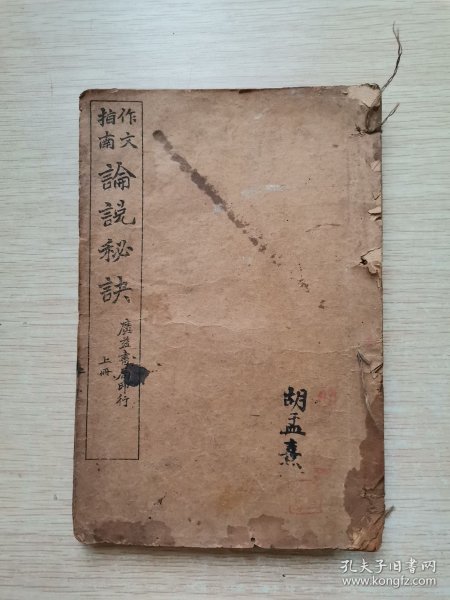 作文
指南
論説秘訣
廣益書局印行
上冊
胡孟熹
孔夫子旧书网
www.kongfz.com